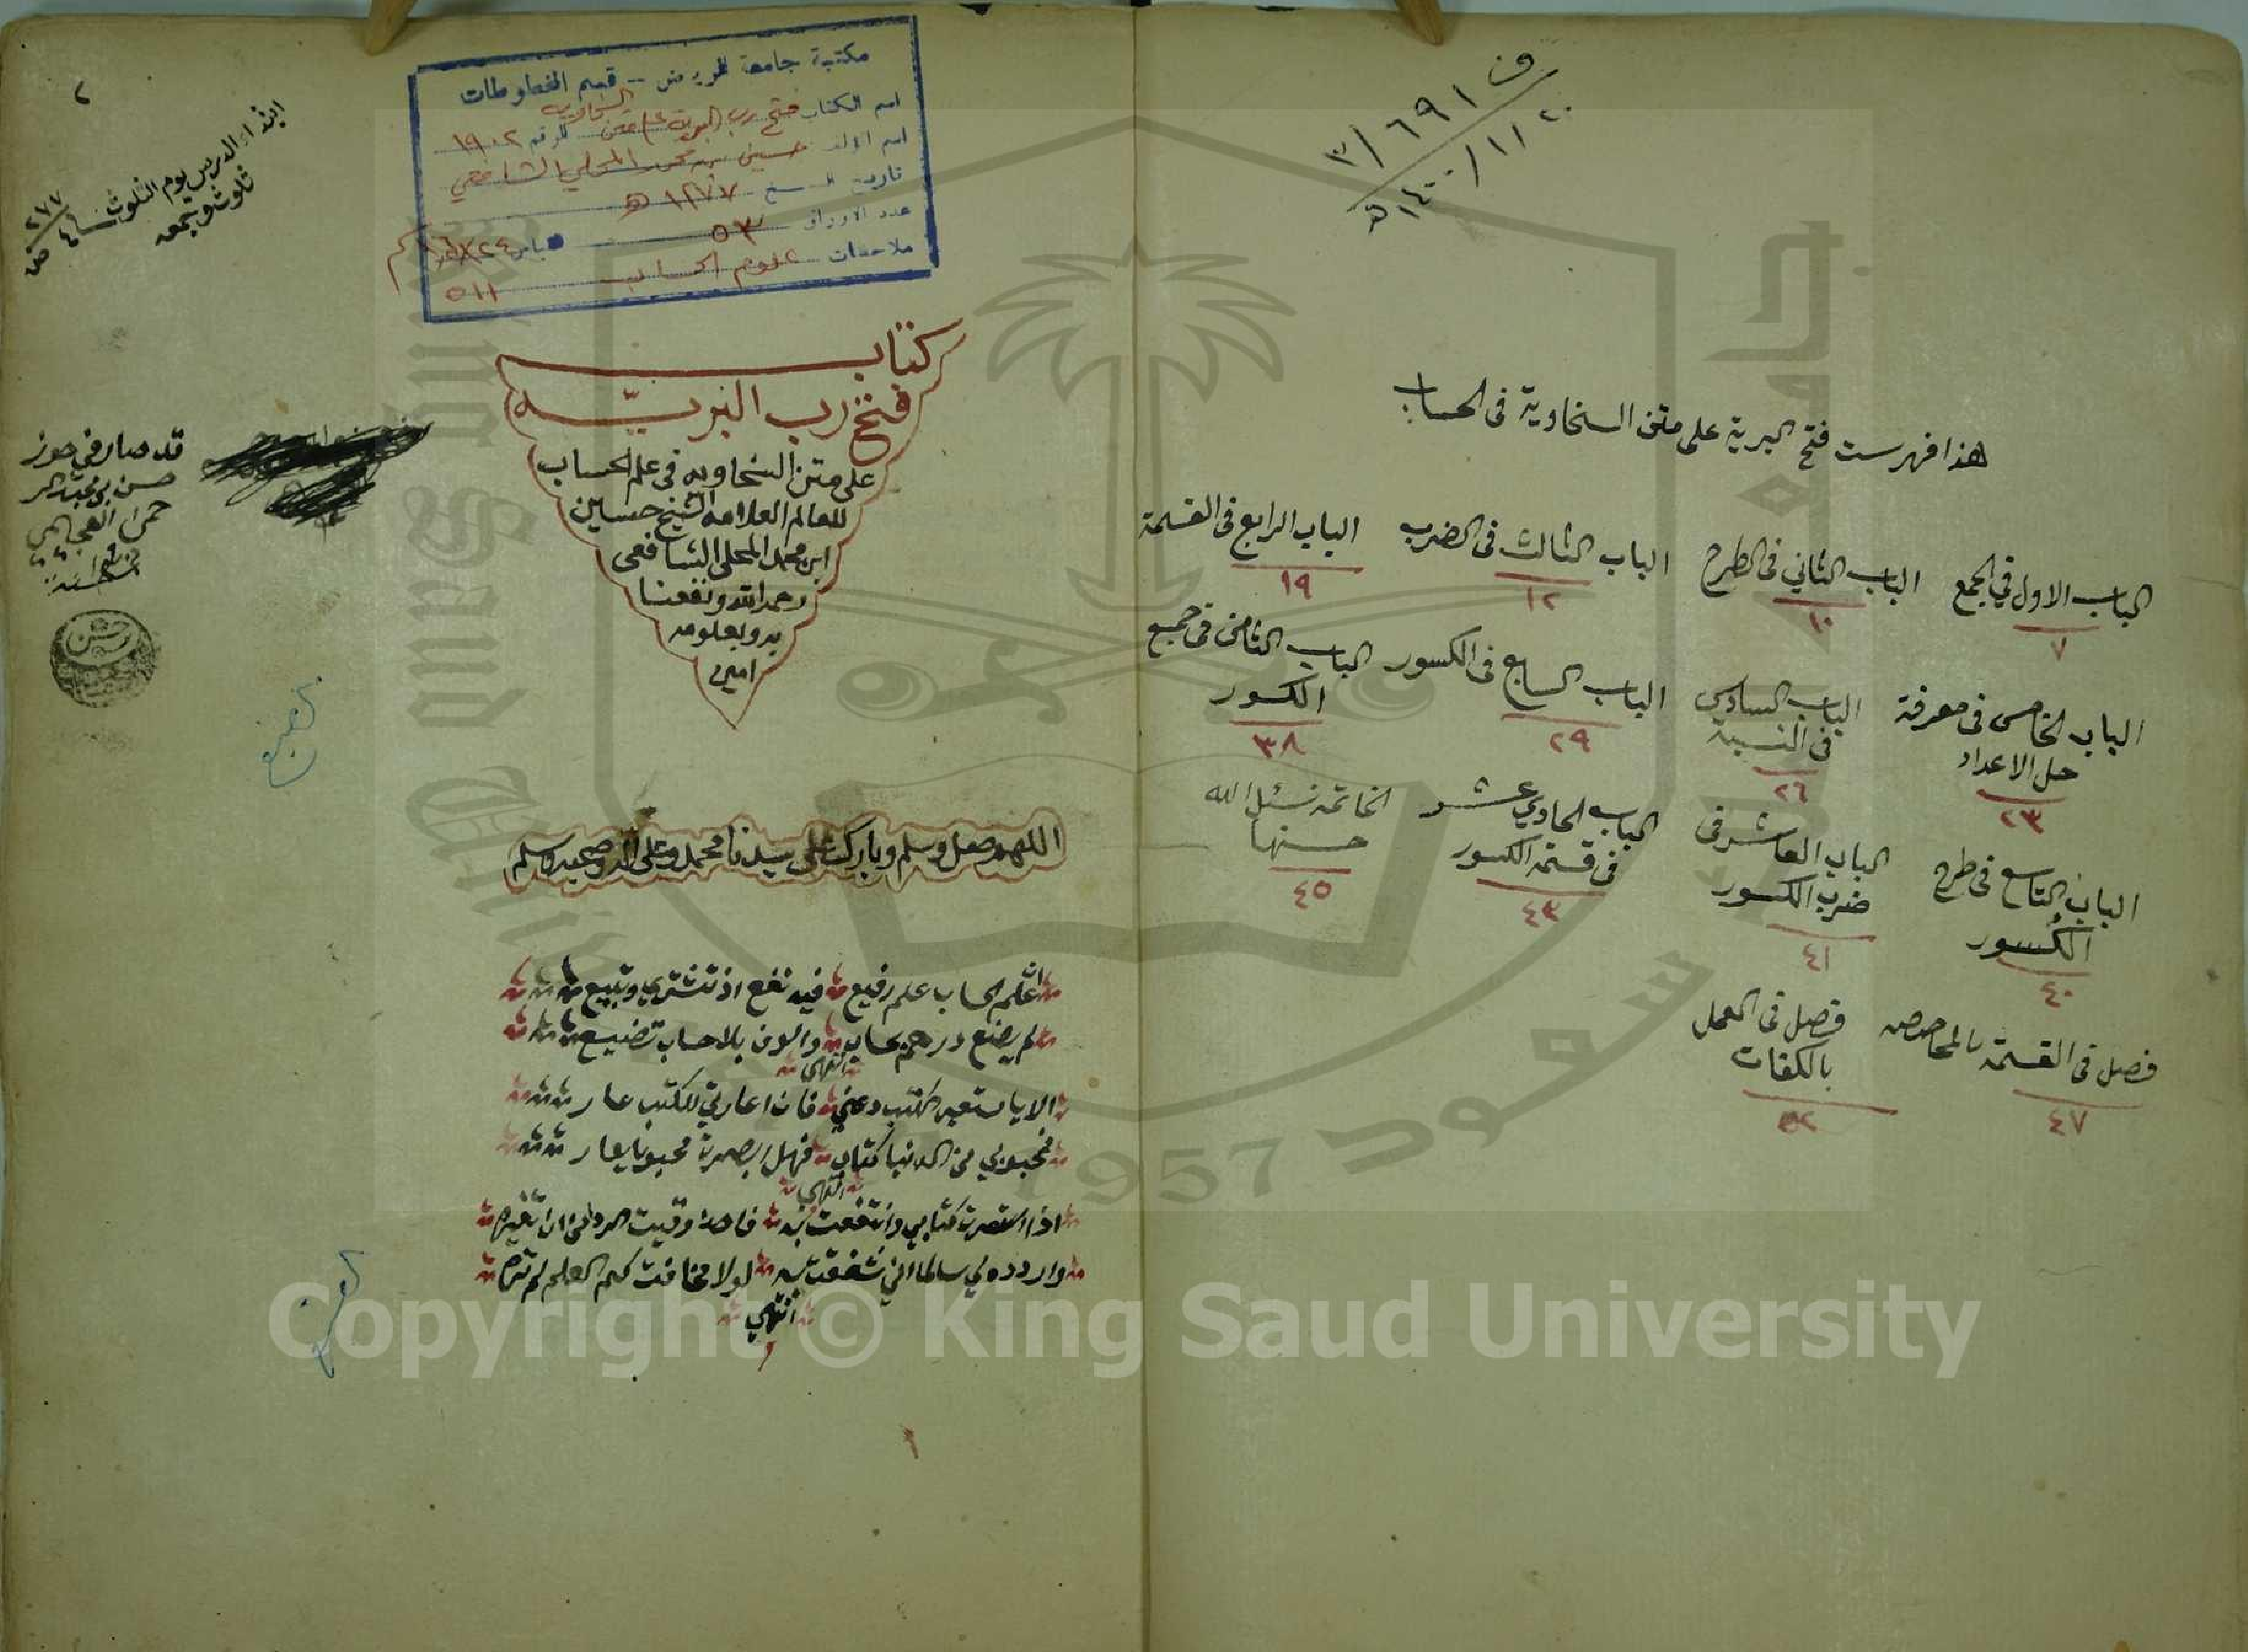 ف ٣/٦٩١
١٤٠٠/١١/٢٠ هـ
هذا فهرست فتح البرية على متن السخاوية في الحساب
الباب الاول في الجمع
٧
الباب الثاني في الطرح
١٠
الباب الثالث في الضرب
١٢
الباب الرابع في القسمة
١٩
الباب الخامس في معرفة
حل الاعداد
٢٣
الباب السادس
في النسبة
٢٦
الباب السابع في الكسور
٢٩
الباب الثامن في جميع
الكسور
٣٨
الباب التاسع في طرح
الكسور
٤٠
الباب العاشر في
ضرب الكسور
٤١
الباب الحادي عشر
في قسمة الكسور
٤٣
الخاتمة نسئل الله
حسنها
٤٥
فصل في القسمة بالمحاصصه
٤٧
فصل في العمل
بالكفات
٥٢
مكتبة جامعة الرياض - قسم المخطوطات
اسم الكتاب فتح رب البرية على متن السخاوية الرقم ١٩٠٢
اسم المؤلف حسين بن محمد المحلي الشافعي
تاريخ النسخ ١٢٧٧ هـ
عدد الاوراق ٥٣
ملاحظات علوم الحساب ٥١١
٢
ابتداء الدرس يوم الثلوث
ثلوث وجمعه
٢٧٧
كتاب
فتح رب البريّه
على متن السخاويه في علم الحساب
للعالم العلامه الشيخ حسين
ابن محمد المحلي الشافعي
رحمه الله ونفعنا
به وبعلومه
امين
قد صار في حوز
حسن بن
اللهم صل وسلم وبارك على سيدنا محمد وعلى اله وصحبه وسلم
اعلم الحساب علم رفيع فيه نفع اذ تشتري وتبيع
لم يضع درهم بحساب والوف بلا حساب تضيع
انتهى
الا يا مستعير الكتب دعني فان اعارتي للكتب عار
فمحبوبي من الدنيا كتاب فهل ابصرت محبوبا يعار
انتهى
اذا استعرت كتابي وانتفعت به فاحذر وقيت الردى من ان تغيره
واردده لي سالما اني شغفت به لولا مخافت كتم العلم لم تره
انتهى
Copyright © King Saud University
1957
سعود